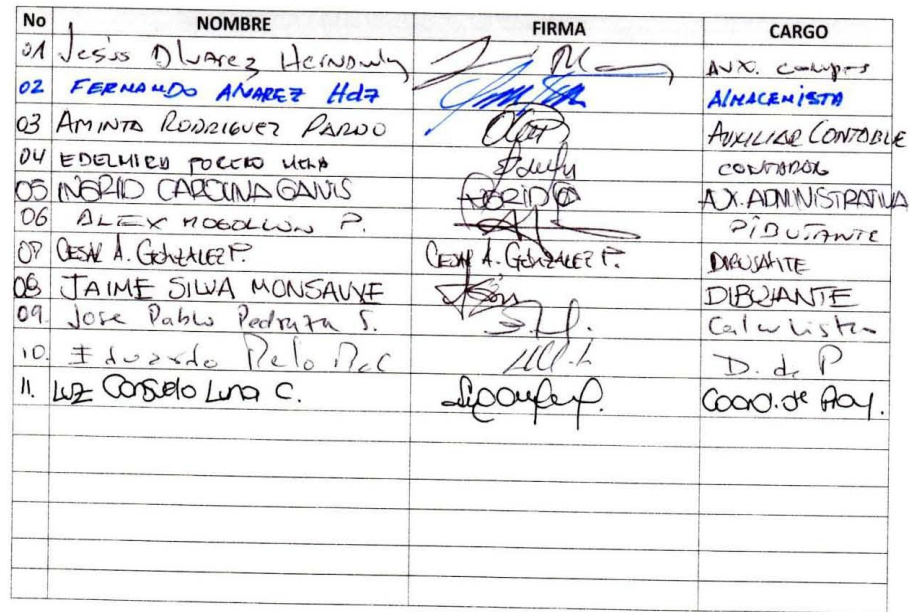 No NOMBRE FIRMA CARGO
01 Jesús Alvarez Hernandez AUX. compras
02 FERNANDO AlVAREZ Hdz AlMACENISTA
03 AMINTA RODRIGUEZ PARDO AUXILIAR CONTABLE
04 EDELMIRA CONTADOR
05 INGRID CAROLINA GANUS INGRID AUX. ADMINISTRATIVA
06 ALEX MOGOLLON P. DIBUJANTE
07 CESAR A. GONZALEZ P. CESAR A. GONZALEZ P. DIBUJANTE
08 JAIME SILVA MONSALVE DIBUJANTE
09. Jose Pablo Pedraza S. Calculista
10. Eduardo D. de P
11. LUZ Consuelo Luna C. Coord. de Proy.